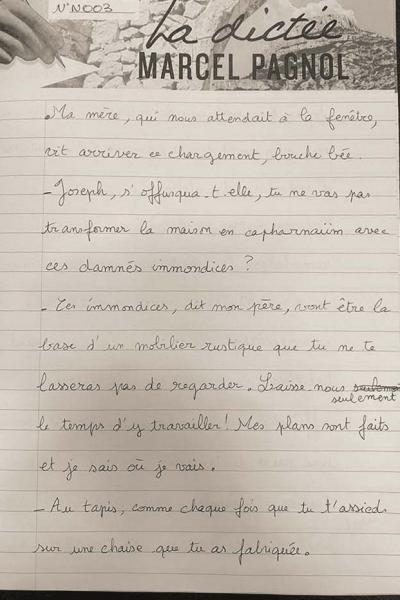 N°N003
La dictée
MARCEL PAGNOL
Ma mère, qui nous attendait à la fenêtre,
vit arriver ce chargement, bouche bée.
- Joseph, s'offusqua-t-elle, tu ne vas pas
transformer la maison en capharnaüm avec
ces damnés immondices ?
- Ces immondices, dit mon père, vont être la
base d'un mobilier rustique que tu ne te
lasseras pas de regarder. Laisse nous
seulement
le temps d'y travailler ! Mes plans sont faits
et je sais où je vais.
- Au tapis, comme chaque fois que tu t'assieds
sur une chaise que tu as fabriquée.